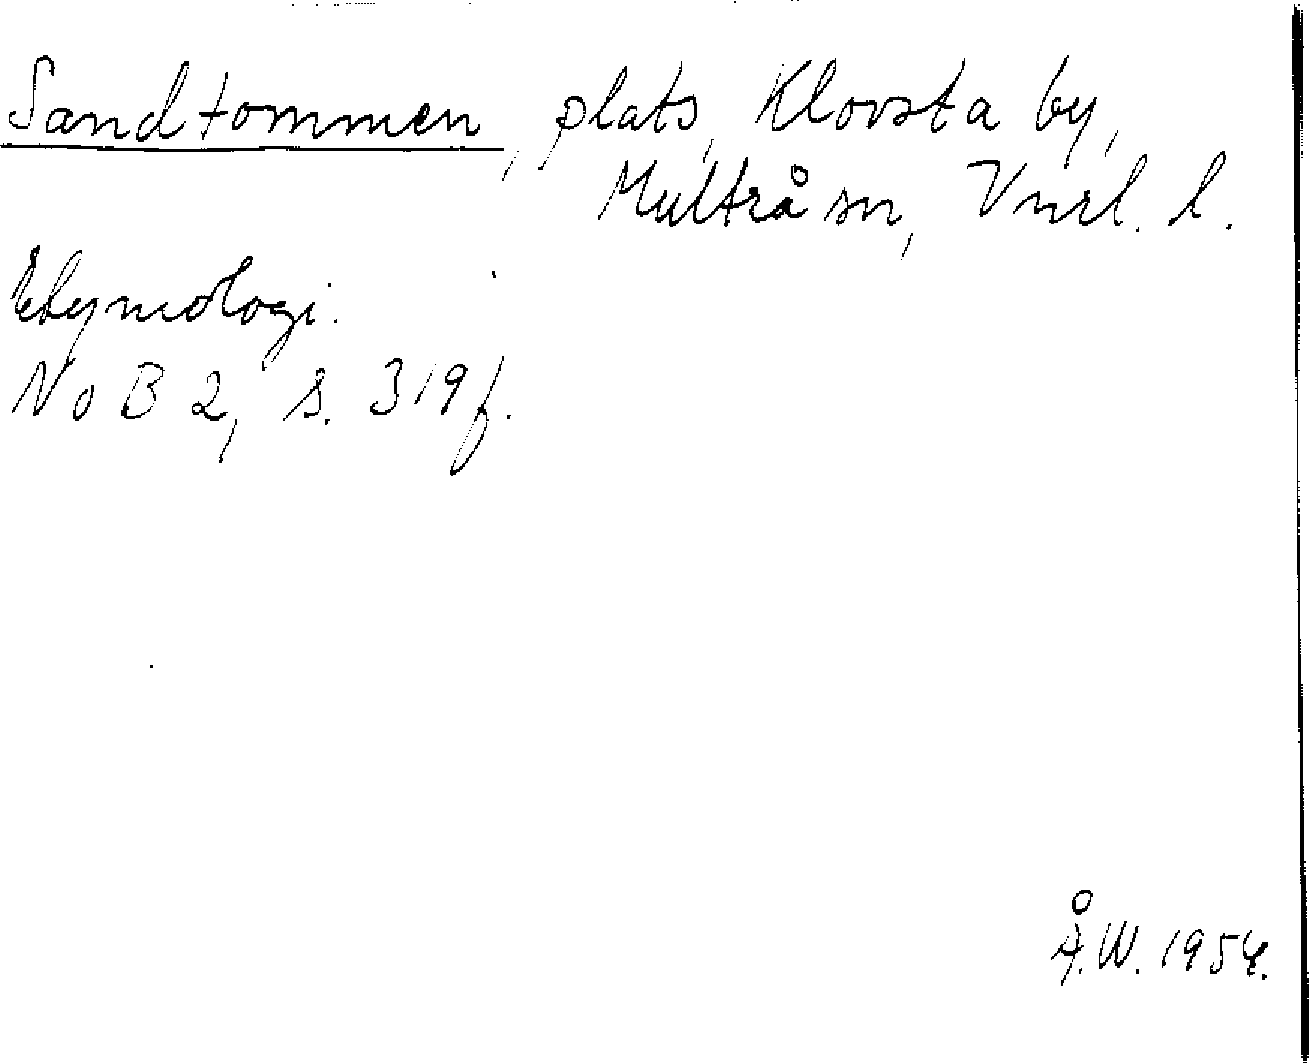 Sandtommen, plats, Klovsta by,
Multrå sn, Vnrl. l.
Etymologi.
NoB 2, s. 319 f.
Å.W. 1954.